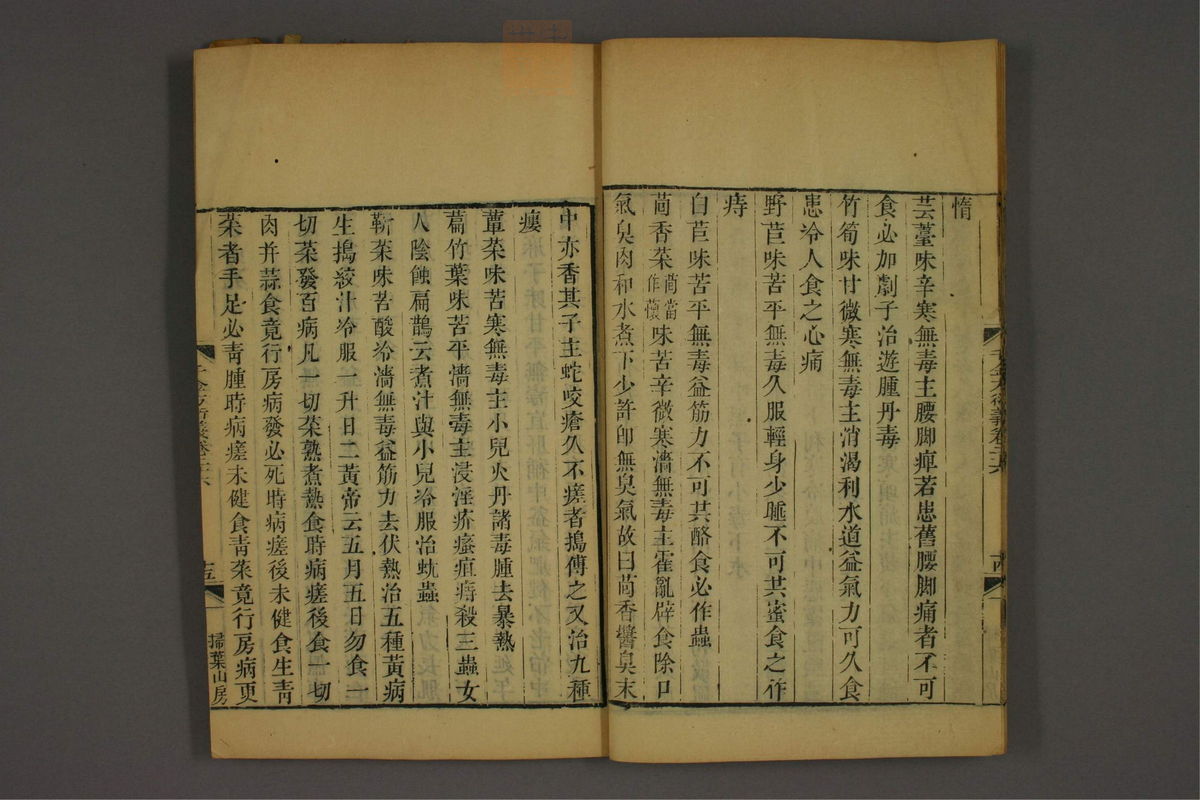 惰
芸薹味辛寒無毒主腰脚痺若患舊腰脚痛者不可
食必加劇子治遊腫丹毒
竹筍味甘微寒無毒主消渴利水道益氣力可久食
患冷人食之心痛
野苣味苦平無毒久服輕身少睡不可共蜜食之作
痔
白苣味苦平無毒益筋力不可共酪食必作蟲
茴香菜茴當作蘹味苦辛微寒濇無毒主霍亂辟食除口
氣臭肉和水煮下少許即無臭氣故曰茴香醬臭末
中亦香其子主蛇咬瘡久不瘥者搗傅之又治九種
瘻
蕈菜味苦寒無毒主小兒火丹諸毒腫去暴熱
萹竹葉味苦平濇無毒主浸淫疥瘙疽痔殺三蟲女
人陰蝕扁鵲云煮汁與小兒冷服治蚘蟲
靳菜味苦酸冷濇無毒益筋力去伏熱治五種黃病
生搗絞汁冷服一升日二黃帝云五月五日勿食一
切菜發百病凡一切菜熟煮熱食時病瘥後食一切
肉并蒜食竟行房病發必死時病瘥後未健食生青
菜者手足必青腫時病瘥未健食青菜竟行房病更
千金方衍義卷二十六
十五
掃葉山房